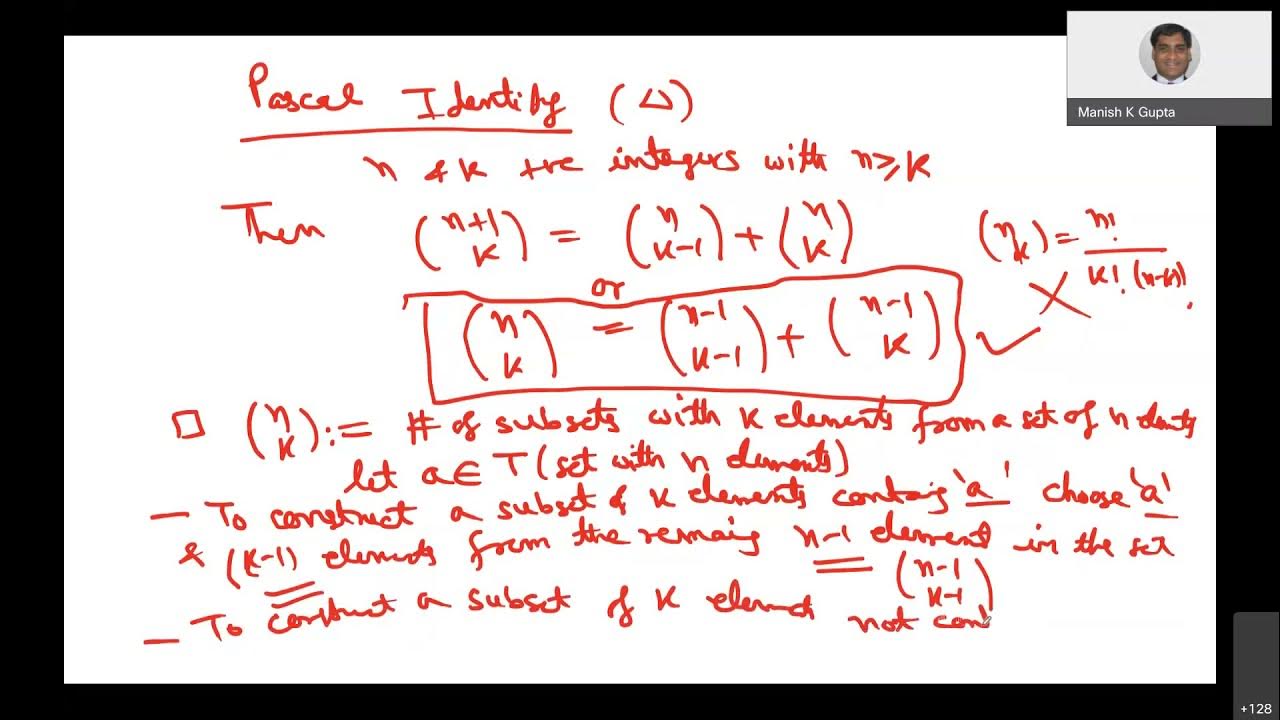 Pascal Identity (△)
n & k +ve integers with n≥k
Then (n+1 k) = (n k-1) + (n k)
(n k) = n! / k! (n-k)!
or
(n k) = (n-1 k-1) + (n-1 k)
□ (n k) := # of subsets with k elements from a set of n elements
let a ∈ T (set with n elements)
— To construct a subset of k elements containg 'a' choose 'a'
& (k-1) elements from the remaing n-1 element in the set
(n-1 k-1)
— To construct a subset of k element not cont
Manish K Gupta
+128